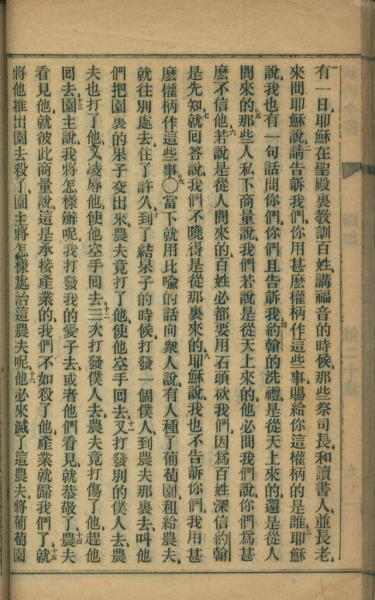 有一日耶穌在聖殿裏教訓百姓講福音的時候那些祭司長和讀書人並長老
來問耶穌說請告訴我們你用甚麼權柄作這些事賜給你這權柄的是誰耶穌
說我也有一句話問你們你們且告訴我約翰的洗禮是從天上來的還是從人
間來的那些人私下商量說我們若說是從天上來的他必問我們說你們爲甚
麼不信他若說是從人間來的百姓必都要用石頭砍我們因爲百姓深信約翰
是先知就回答說我們不曉得是從那裏來的耶穌說我也不告訴你們我用甚
麼權柄作這些事〇當下就用比喻的話向衆人說有人種了葡萄園租給農夫
就往別處去住了許久到了結菓子的時候打發一個僕人到農夫那裏去叫他
們把園裏的菓子交出來農夫竟打了他使他空手回去又打發別的僕人去農
夫也打了他又凌辱他使他空手回去三次打發僕人去農夫竟打傷了他趕他
回去園主說我將怎樣辦呢我打發我的愛子去或者他們看見就恭敬了農夫
看見他就彼此商量說這是承接產業的我們不如殺了他產業就歸我們了就
將他推出園去殺了園主將怎樣處治這農夫呢他必來滅了這農夫將葡萄園